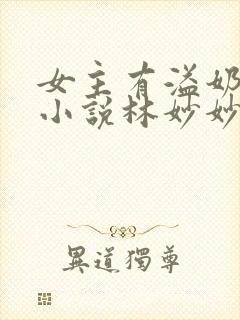 女主有溢奶
小说林妙妙
異道獨尊